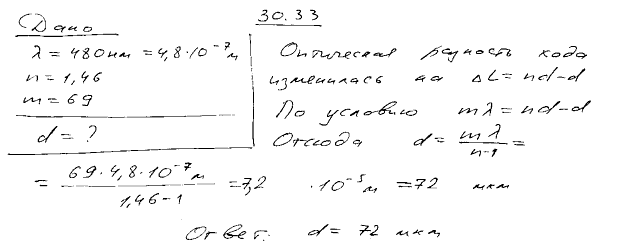 30.33
Дано
λ = 480 нм = 4,8·10⁻⁷ м
n = 1,46
m = 69
d = ?
Оптическая разность хода
изменилась на ΔL = nd-d
По условию mλ = nd-d
Отсюда d = mλ/(n-1) =
= 69·4,8·10⁻⁷ м/(1,46-1) = 7,2 ·10⁻⁵ м = 72 мкм
Ответ: d = 72 мкм